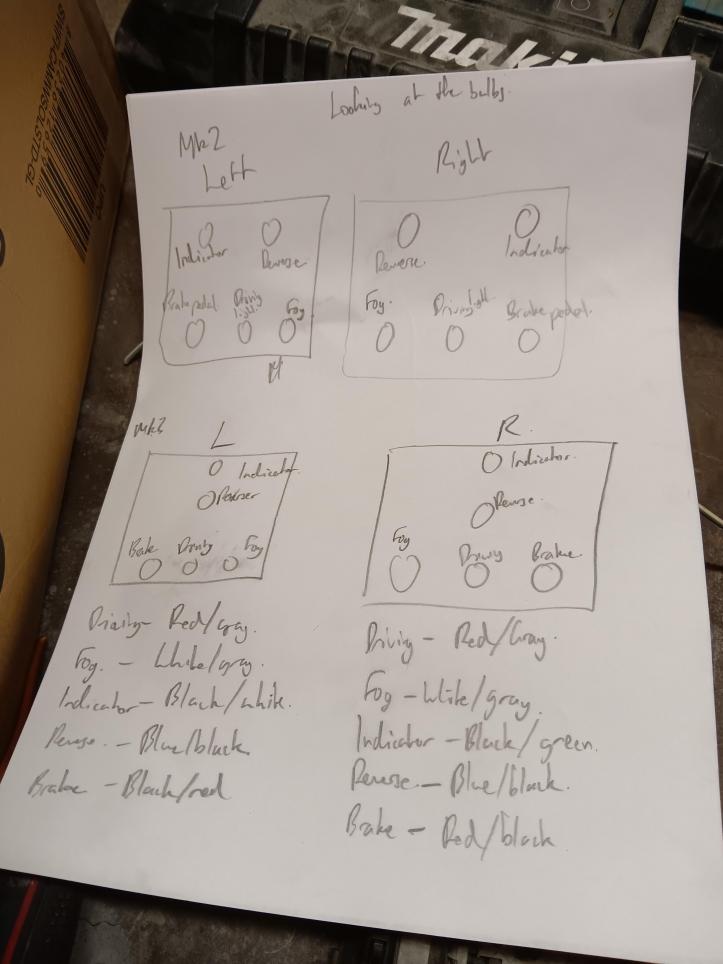 makita
Looking at the bulbs.
Mk2
Left
Right
Indicator
Reverse.
Brake pedal
Driving light.
Fog
Reverse.
Indicator
Fog.
Driving light
Brake pedal.
Mk3
L
Indicator.
Brake
Driving
Fog
R.
Indicator.
Reverse.
Fog
Driving
Brake
Driving - Red/gray.
Fog. - White/gray.
Indicator - Black/white.
Reverse. - Blue/black.
Brake - Black/red
Driving - Red/Gray.
Fog - White/gray.
Indicator - Black/green.
Reverse. - Blue/black.
Brake - Red/black